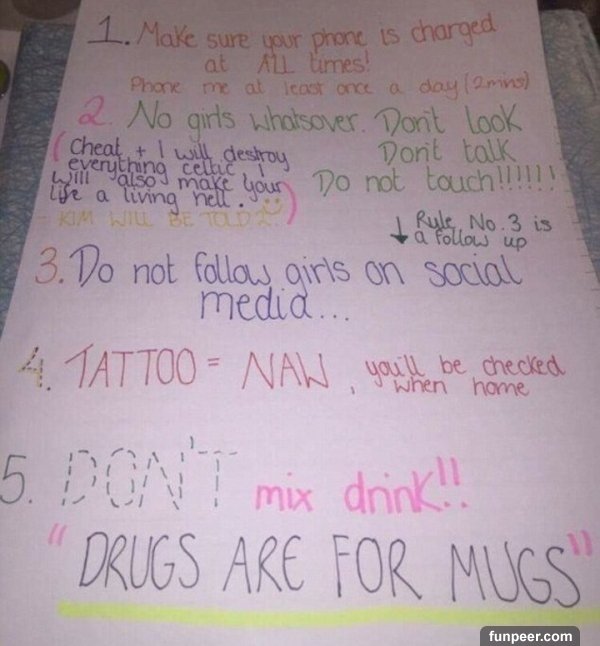 1. Make sure your phone is charged
at ALL times!
Phone me at least once a day (2mins)
2. No girls whatsover. Don't look
Don't talk
Do not touch!!!!!!
(Cheat + I will destroy
everything celtic I
will also make your
life a living hell. )
- KIM WILL BE TOLD 2!!
↓ Rule No. 3 is
a follow up
3. Do not follow girls on social
media...
4. TATTOO = NAW, you'll be checked
when home
5. DON'T mix drink!!
"DRUGS ARE FOR MUGS"
funpeer.com